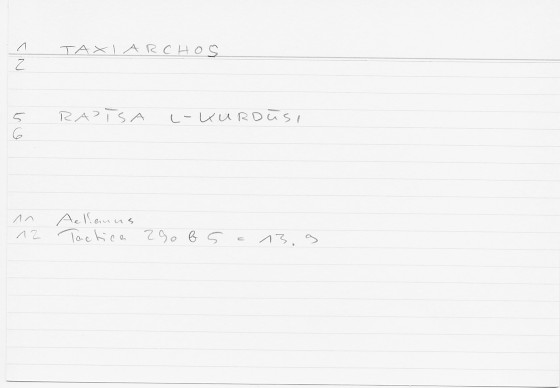 1 TAXIARCHOS
2
5 RAʾĪSA L-KURDŪSI
6
11 Aelianus
12 Tactica 290 B 5 = 13.9